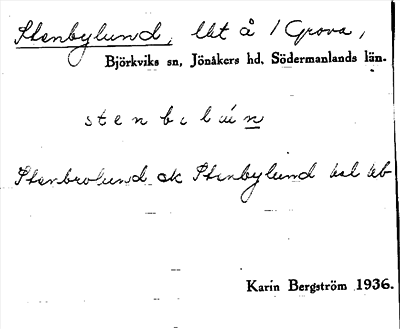 Stenbylund, lht å / Grova,
Björkviks sn, Jönåkers hd, Södermanlands län.
stenbilún
Stenbrolund ok Stenbylund
Karin Bergström 1936.